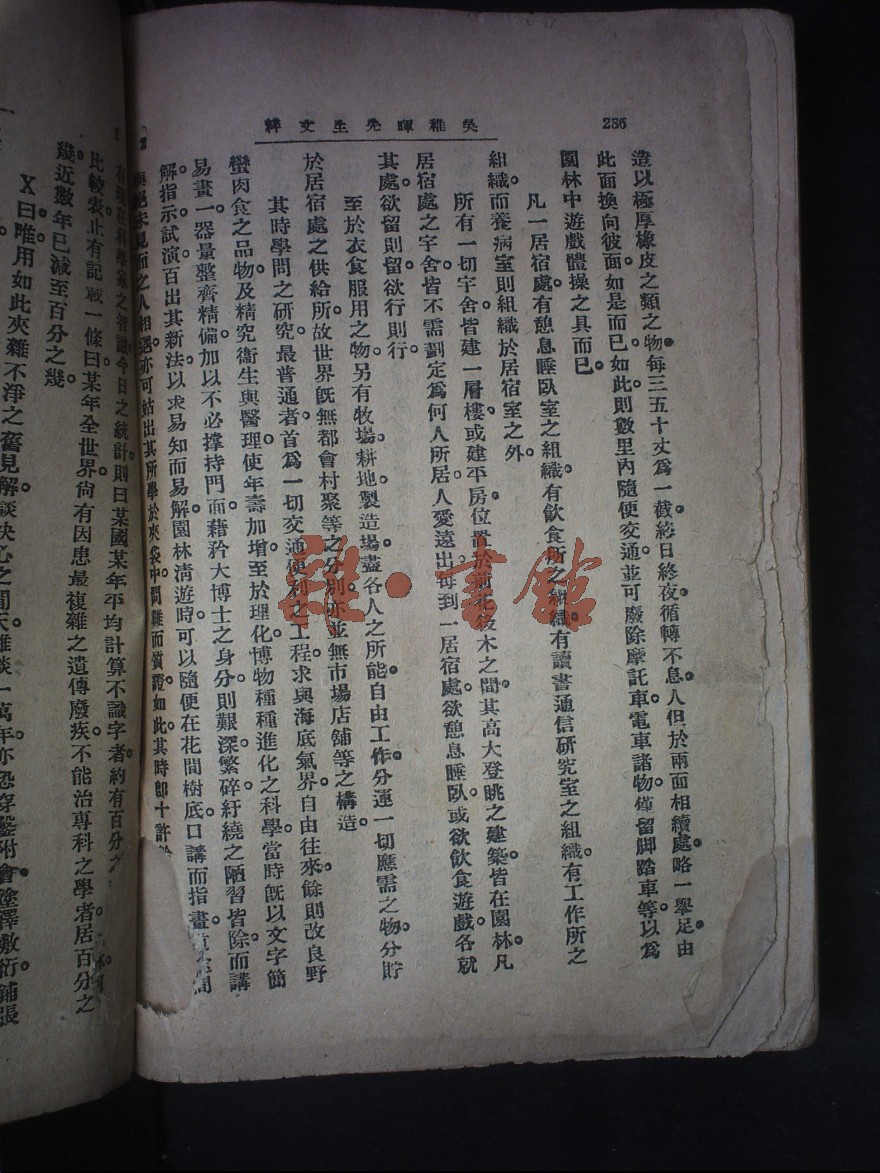 286
吳稚暉先生文粹
造以極厚橡皮之類之物。每三五十丈爲一截。終日終夜。循轉不息。人但於兩面相續處。略一舉足。由
此面換向彼面。如是而已。如此。則數里內隨便交通。並可廢除摩託車電車諸物。僅留脚踏車等。以爲
園林中遊戲體操之具而已。
凡一居宿處。有憩息睡臥室之組織。有飲食所之組織。有讀書通信研究室之組織。有工作所之
組織。而養病室則組織於居宿室之外。
所有一切宇舍。皆建一層樓或建平房。位置於前花後木之間。其高大登眺之建築。皆在園林。凡
居宿處之宇舍。皆不需劃定爲何人所居。人愛遠出。每到一居宿處。欲憩息睡臥或欲飲食遊戲。各就
其處。欲留則留。欲行則行。
至於衣食服用之物。另有牧場耕地製造場。盡各人之所能。自由工作。分運一切應需之物。分貯
於居宿處之供給所。故世界旣無都會村聚等之分別。亦並無市場店舖等之構造。
其時學問之研究。最普通者。首爲一切交通便利之工程。求與海底氣界自由往來。餘則改良野
蠻肉食之品物。及精究衛生與醫理。使年壽加增。至於理化博物種種進化之科學。當時旣以文字簡
易。畫一器量整齊精備。加以不必撐持門面。藉矜大博士之身分。則艱深繁碎紆繞之陋習皆除。而講
解指示試演。百出其新法。以求易知而易解。園林淸遊時。可以隨便在花間樹底。口講而指畫。
與絕未見面之人相遇。亦可姑出其所學於夾袋中。問難而質證。如此。其時卽十許
有現在科學家之智識。今日之統計。則曰某國某年平均計算。不識字者約有百分之
比較表止有記載一條曰。某年全世界尙有因患最複雜之遺傳廢疾。不能治專科之學者。居百分之
幾。近數年已減至百分之幾。
X曰。唯用如此夾雜不淨之舊見解。談快心之閒天。雖談一萬年。亦恐穿鑿附會。塗澤敷衍。鋪張
雜·書館